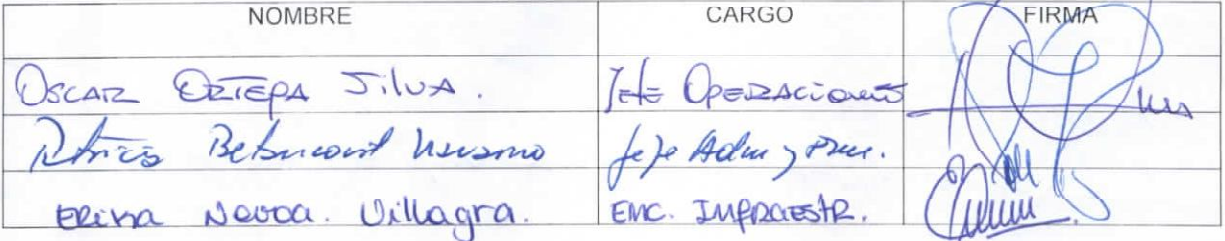 NOMBRE CARGO FIRMA
OSCAR ORTEGA SILVA. Jefe OPERACIONES
Patricio Betancourt Navarro Jefe Adm y
ERIKA Novoa. Villagra. ENC. INFRAESTR.